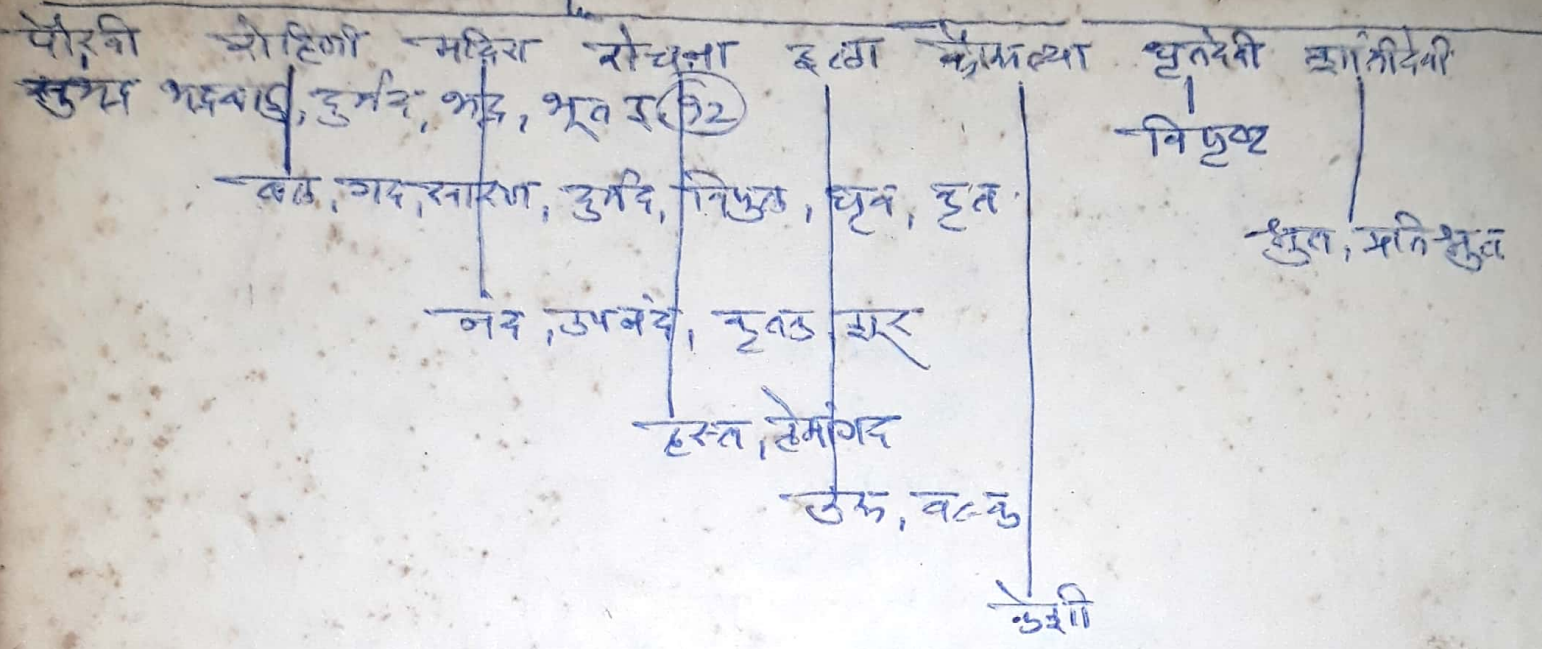 पौरवी रोहिणी मदिरा रोचना इला कौसल्या धृतदेवी शांतीदेवी
सुभद्र भद्रबाहु, दुर्मद, भद्र, भूत इ. १२
विपृष्ट
बल, गद, सारण, दुर्मद, विपुल, ध्रुव, कृत
श्रुत, प्रतिश्रुत
नंद, उपनंद, कृतक शूर
हस्त, हेमांगद
उरू, वल्कु
केशी